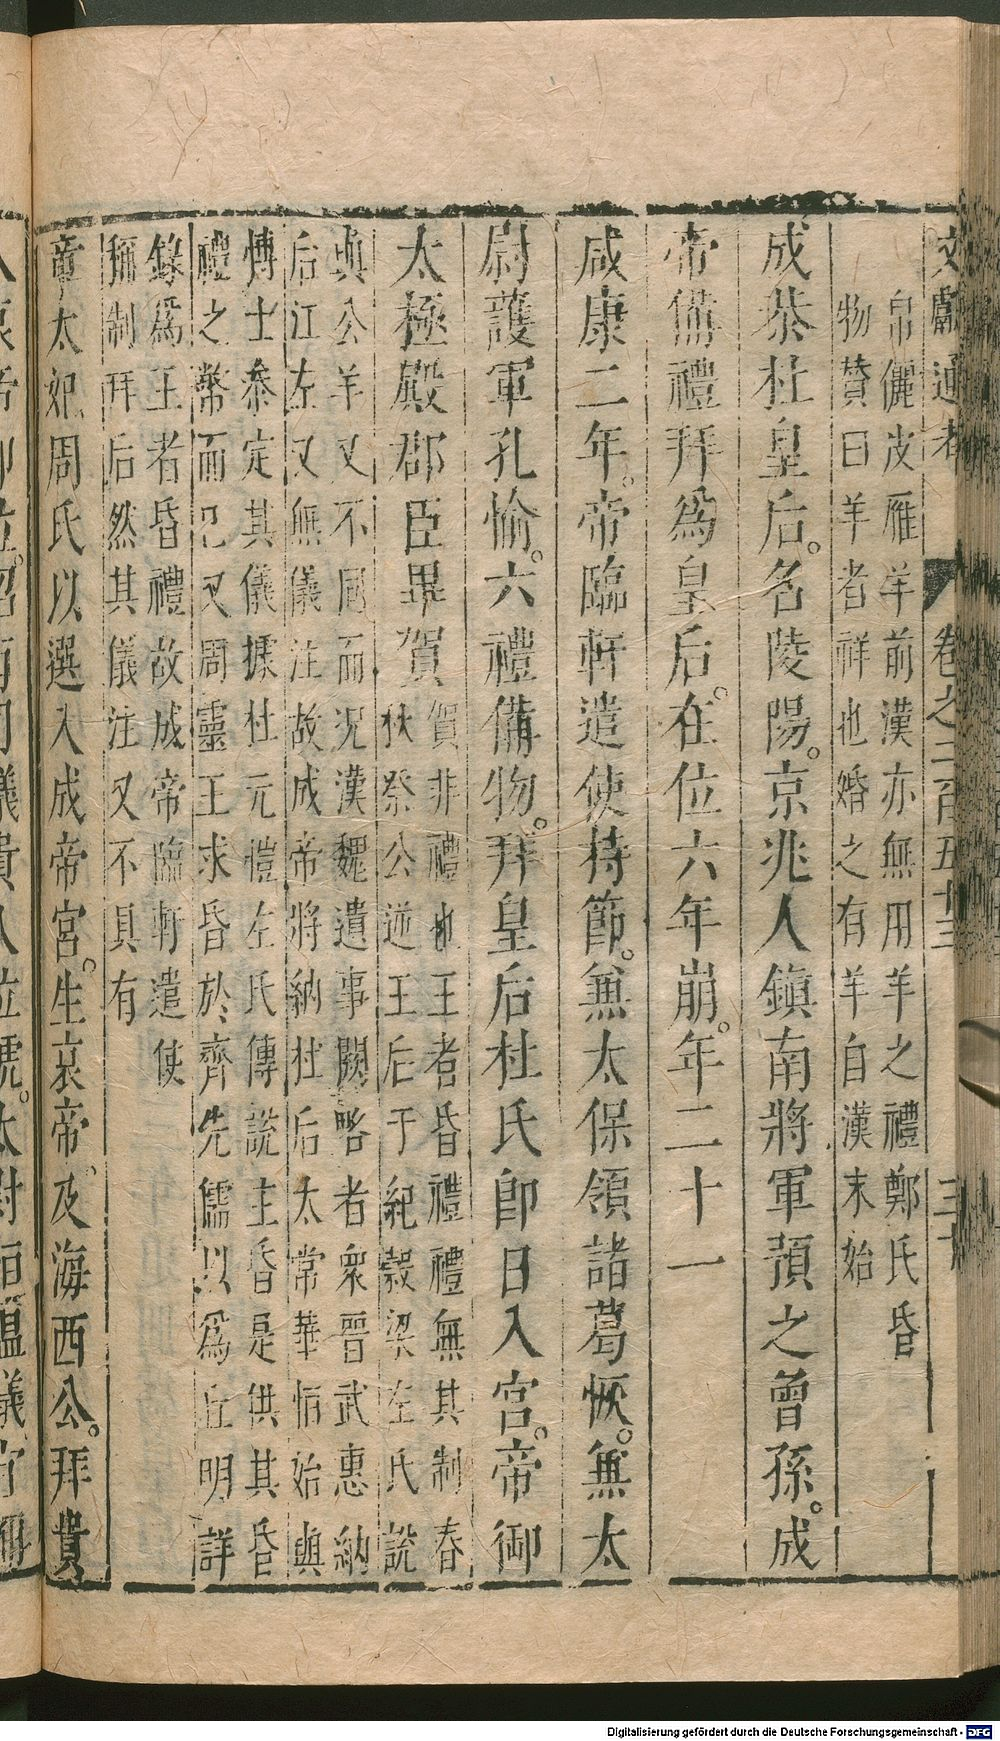 文獻通考　卷之二百五十三
帛儷皮雁羊前漢亦無用羊之禮鄭氏昏
物賛曰羊者祥也婚之有羊自漢末始
成恭杜皇后。名陵陽。京兆人鎮南將軍預之曾孫。成
帝備禮拜爲皇后。在位六年崩。年二十一
咸康二年。帝臨軒遣使持節。兼太保領諸葛恢。兼太
尉護軍孔愉。六禮備物。拜皇后杜氏即日入宫。帝御
太極殿郡臣畢賀
賀非禮也王者昏禮禮無其制春
秋祭公逆王后于紀穀梁左氏說
與公羊又不同而況漢魏遺事闕略者衆晉武惠納
后江左又無儀注故成帝將納杜后太常華恒始與
愽士叅定其儀據杜元愷左氏傳說主昏是供其昏
禮之幣而已又周靈王求昏於齊先儒以爲丘明詳
錄爲王者昏禮故成帝臨軒遣使
稱制拜后然其儀注又不具有
章太妃周氏以選入成帝宫。生哀帝。及海西公。拜貴
Digitalisierung gefördert durch die Deutsche Forschungsgemeinschaft - DFG